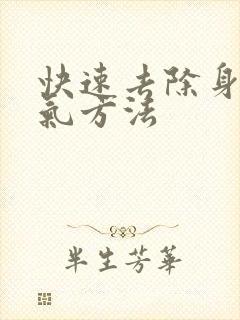 快速去除身
氣方法
半生芳華